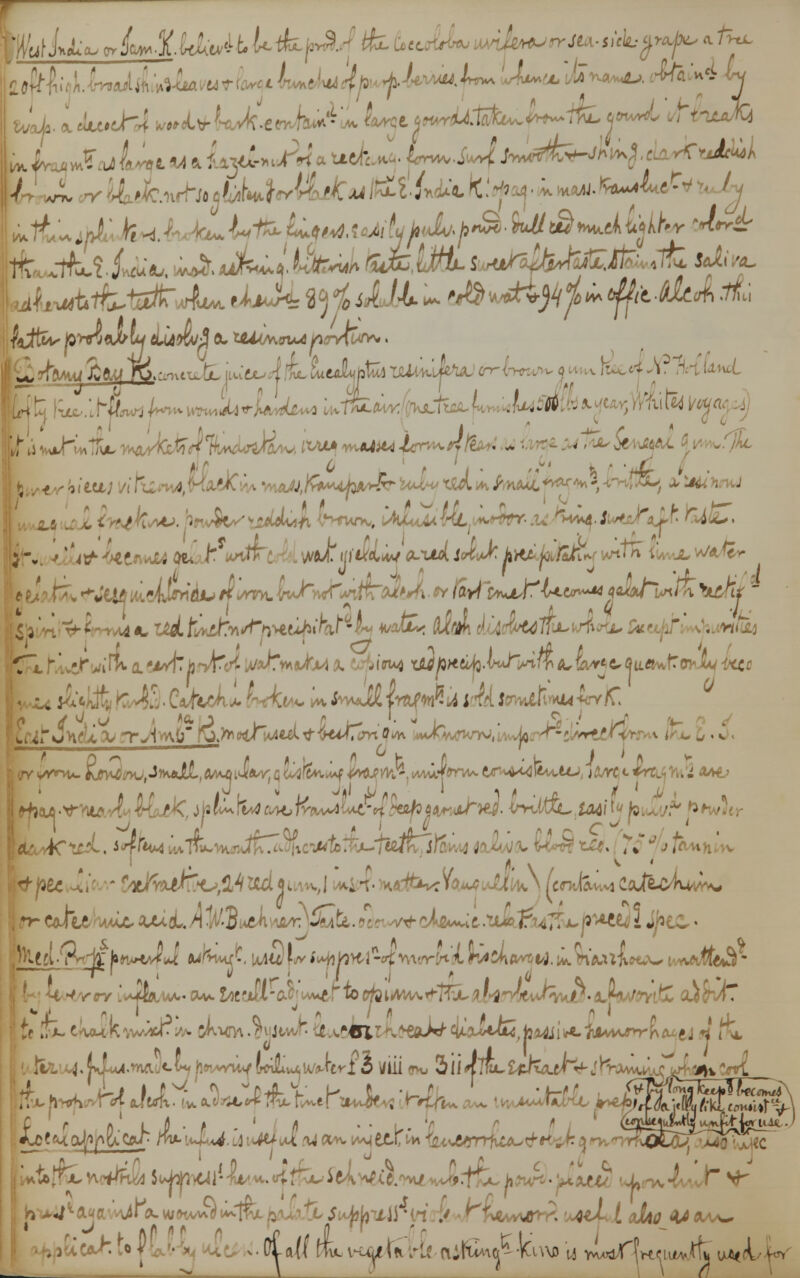 West India or Jam. K. believd to be the prod. of the Coccoloba uvifera or sea-side-grape a tree
20 ft high. broad shin'g leaves & large bunches of purp. berries. from whence its name. obtaind by
evap. a decoct. of wood & bark. containd in large gourds. taken from the gourd it breaks
in fragmts as large as a hazel-nut of a rectang. form. surf smooth & shining. dark reddish
brown or black. not so glisten'g or black as the E. India K. opaq. in mass. transluct & ruby
in thin splinters. broken by the fingers. easily pulv. powd. dull red much lighter colord
than the E. India. inod. astring. bitterish taste. little sweet aftertaste. stains the saliva
adheres to the teeth when chewed 89 % soluble in cold wat & 94 % in offic. Alcoh. this
latter probably dissolv'g a resinous portion.
Botany Bay K. concrete juice of the Eucalyptus resinifera or brown gum tree of N. Holland
lofty tree. it flows from wounds & hardens in the air. (one tree furnishes 500 lbs a year, Whites voyages)
it is met in the markets of Hindostan, in masses form of tears as large as the Senegal gum. The
purer pieces vitreous, black in mass, transpart & ruby red in small fragmts, brittle, a resinous
unequal fracture. powder reddish brown, infusible, inodor. astring. sweet aft. taste.
with cold wat. yielding a red solut. precipitatg with lime water
gelatin, & sesquichloride of iron but not with alcoh. or tart. emet. becomes gelat. with rectifd
spirit & forms a red tinct. not precipitatd by water. Alcoh dissolves the whole except impurities
The tinct with a cert. port. of wat. makes a copious red precip. but with a large quant. only beco
mes slightly turbid. Catechu broken in small fragmts is sold sometimes for K.
East India or Ambna K. most used & best. origin unknown, importd direct from the E. I.
or from London, small, angular, glistening fragmts, uniform consistence, larger fragmts are
opaq. & nearly black, splinters are transluct of deep garnet red. brittle, easily pulvd powder
dark red. softens in the mouth. adheres to the teeth, stains saliva blood red. (75 % tannin
& peculiar extractive, 24 red gum, 1 insol. matter Vauquelin) (contains catechuin
or catechuic acid. A. W. Buchner) Taste. odour & chemic. rel. as the preced'g spec.
Med. Props powerful astringt. used for suppressn of morbid discharges. in diarrhoea unattendd
by fever or inflam. an excellt adjunct to opium & the absorbent med. a favorite addit.
to the chalk mixt. in chron. dysent. leucorrhoea & diabetes, passive hemorrhages of the
uterus. Infus. made by pouring boiling water f ℥ viii on ʒ ii of the extract & straining when cool
the proport. of alcoh. in a dose of the tinct renders it often an unsuitable prep.
& by long keepg becomes
of a jelly like consistce &
consequently unfit for use.
Local applicat. the infus. is useful as an inject. in leucorrhea & obst. gonorrhoea,
into the nostrils suppressd hem. of the Schneid. memb. the powd. placed upon lint &
pressd against a wound in the palate suppressd violent hemorr. useful also as an
applicat. to flabby ulcers. Of all the vegetable astringts kino is most frequently used for